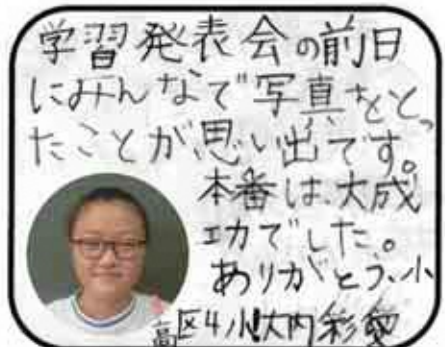 学習発表会の前日
にみんなで写真をとっ
たことが思い出です。
本番は、大成
功でした。
ありがとう、小
高区4小!大内彩愛